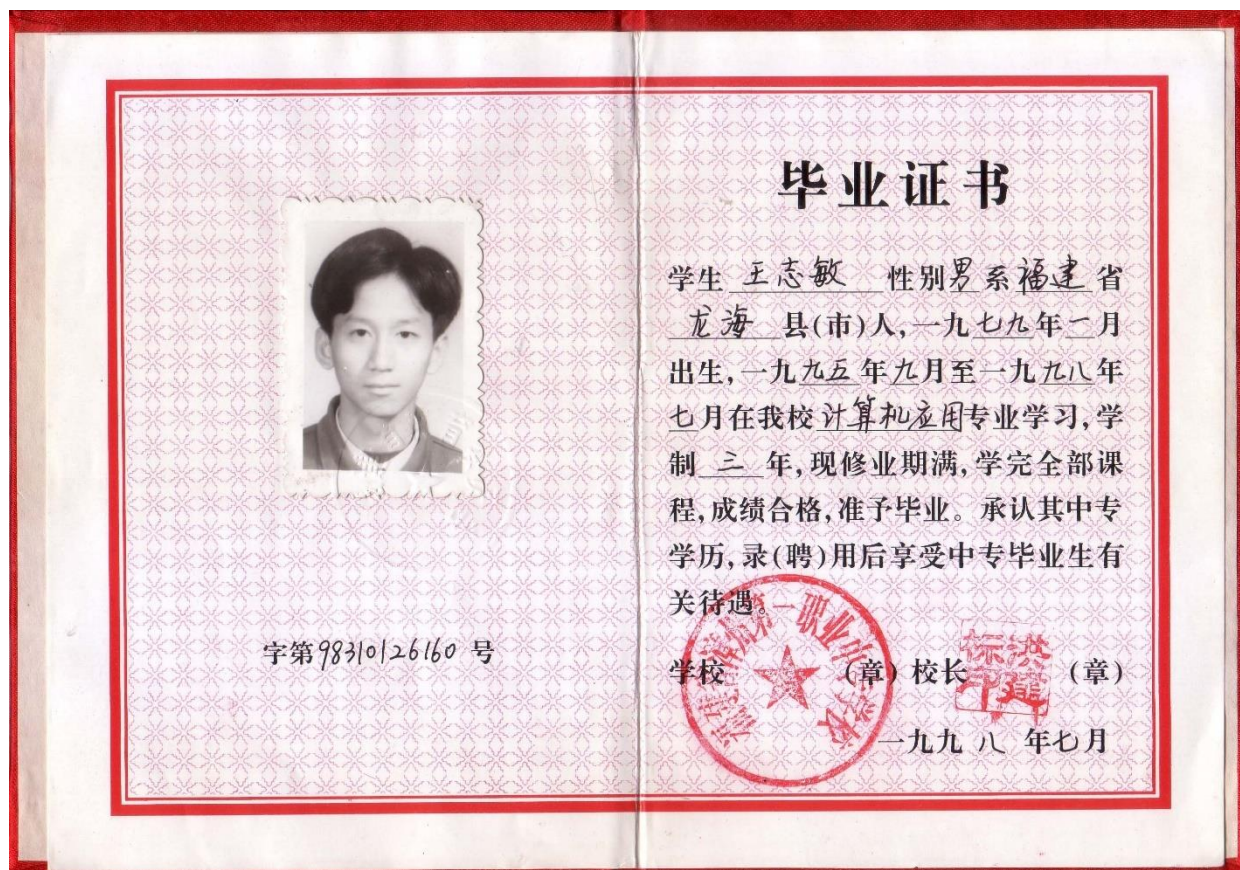 字第98310126160号
毕业证书
学生 王志敏 性别男系福建省
龙海 县(市)人,一九七九年一月
出生,一九九五年九月至一九九八年
七月在我校计算机应用专业学习,学
制 三 年,现修业期满,学完全部课
程,成绩合格,准予毕业。承认其中专
学历,录(聘)用后享受中专毕业生有
关待遇。
学校 (章) 校长 (章)
第一职业中专学校
一九九八年七月